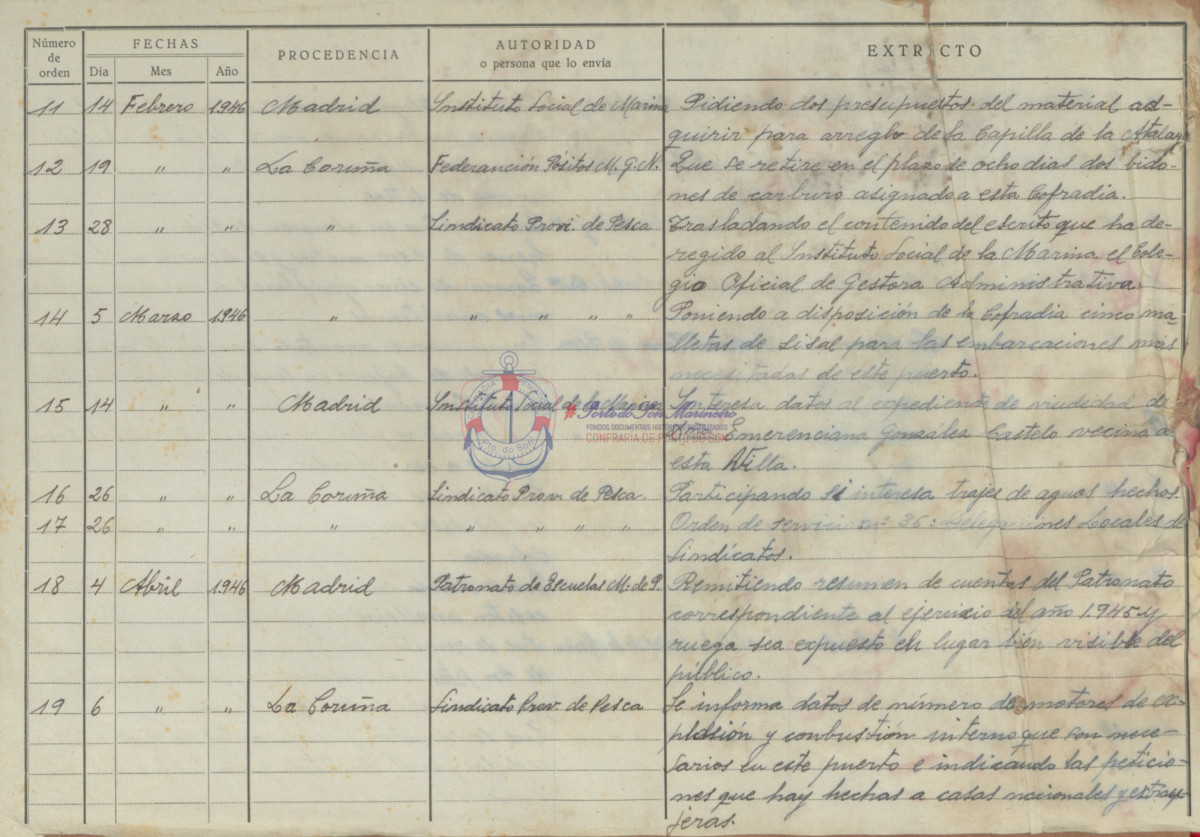 Número de orden
FECHAS
Día Mes Año
PROCEDENCIA
AUTORIDAD
o persona que lo envía
EXTRACTO
11 14 Febrero 1946 Madrid Instituto Social de Marina Pidiendo dos presupuestos del material ad-
quirir para arreglo de la Capilla de la Atalaya
12 19 " " La Coruña Federanción Pósitos M. G. N. Que se retire en el plazo de ocho dias dos bido-
nes de carburo asignado a esta Cofradia.
13 28 " " " Sindicato Provi. de Pesca Trasladando el contenido del escrito que ha de-
regido al Instituto Social de la Marina el Cole-
gio Oficial de Gestora Administrativa.
14 5 Marzo 1946 " " " " " Poniendo a disposición de la Cofradia cinco ma-
lletas de sisal para las embarcaciones más
necesitadas de este puerto.
15 14 " " Madrid Instituto Social de la Marina Interesa datos al expediente de viudedad de
Emerenciana González Castelo vecina a
esta Villa.
16 26 " " La Coruña Sindicato Prov. de Pesca. Participando si interesa trajes de aguas hechos
17 26 " " " " " " " Orden de servicio nº 36: Delegaciones Locales de
Sindicatos.
18 4 Abril 1946 Madrid Patronato de Escuelas M. de P. Remitiendo resumen de cuentas del Patronato
correspondiente al ejercicio del año 1.945 y
ruega sea expuesto en lugar bien visible del
público.
19 6 " " La Coruña Sindicato Prov. de Pesca Se informa datos de número de motores de ex-
plosión y conbustión interno que son nece-
sarios en este puerto e indicando las peticio-
nes que hay hechas a casas nacionales y extran-
jeras.
#Porto do Son Marineiro
FONDOS DOCUMENTAIS HISTÓRICOS DIXITALIZADOS
CONFRARÍA DE PORTO DO SON
Pto. do Son